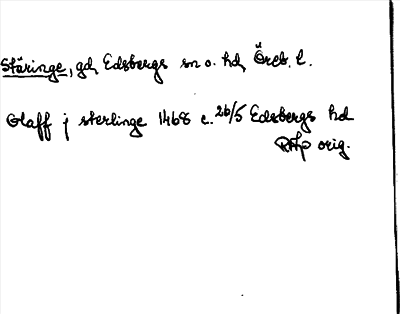 Stäringe, gd, Edsbergs sn o. hd, Öreb. l.
Olaff j sterlinge 1468 c. 26/5 Edsbergs hd
RAp orig.